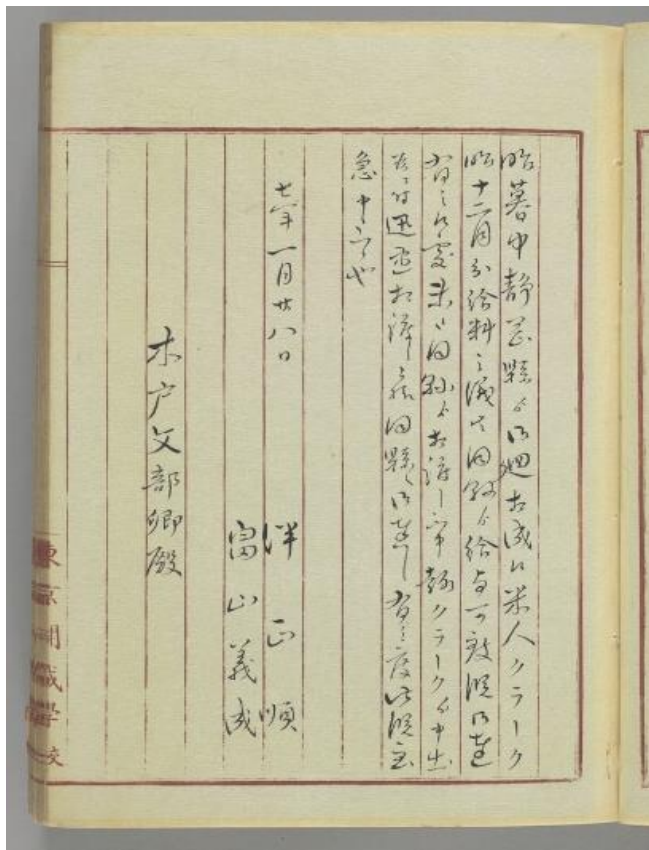 昨暮中静岡縣ゟ御廻相成候米人クラーク
昨十二月分給料之儀者同縣ゟ給与可致段御達
有之候處未タ同縣ゟ相渡不申趣クラークゟ申出
候ニ付迅速相渡候様同縣江御達し有之度此段至
急申上候也
七年一月廿八日
伴正順
畠山義成
木戸文部卿殿
東京開成学校